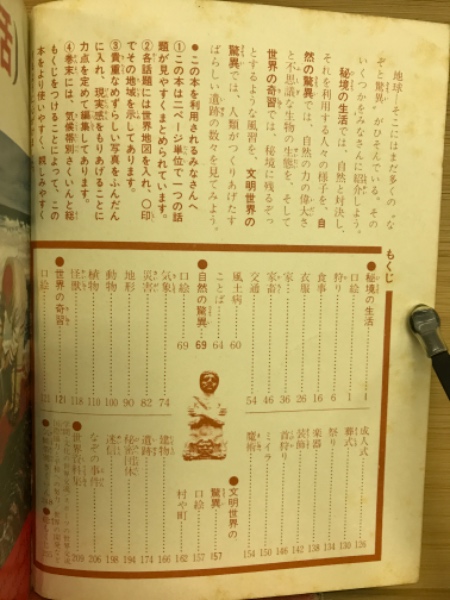 地球！そこにはまだ多くの〝な
ぞと驚異〟がひそんでいる。その
いくつかをみなさんに紹介しよう。
秘境の生活では、自然と対決し、
それを利用する人々の様子を、自
然の驚異では、自然の力の偉大さ
と不思議な生物の生態を、そして
世界の奇習では、秘境に残るぞっ
とするような風習を、文明世界の
驚異では、人類がつくりあげたす
ばらしい遺跡の数々を見てみよう。
●この本を利用されるみなさんへ
①この本は二ページ単位で一つの話
題が見やすくまとめられています。
②各話題には世界地図を入れ、○印
でその地域を示してあります。
③貴重なめずらしい写真をふんだん
に入れ、現実感をもりあげることに
力点を定めて編集してあります。
④巻末には、気候帯別さくいんと総
もくじをつけることによって、この
本をより使いやすく、親しみやすく
もくじ
●秘境の生活
口絵 1
狩り 6
食事 16
衣服 26
家 36
家畜 46
交通 54
風土病 60
ことば 64
●自然の驚異 69
口絵 69
気象 74
災害 82
地形 90
動物 100
植物 110
怪獣 118
●世界の奇習 121
口絵 121
成人式 126
葬式 130
祭り 134
楽器 138
装飾 142
首狩り 146
ミイラ 150
魔術 154
●文明世界の
驚異 157
口絵 157
村や町 162
建物 166
遺跡 174
秘密団体 194
迷信 198
なぞの事件 206
●世界百科集 209